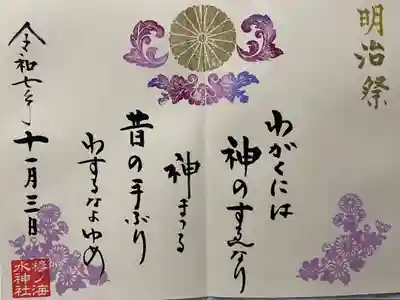 明治祭
わがくには
神のすゑなり
神まつる
昔の手ぶり
わするなよゆめ
令和七年
十一月三日
水神社